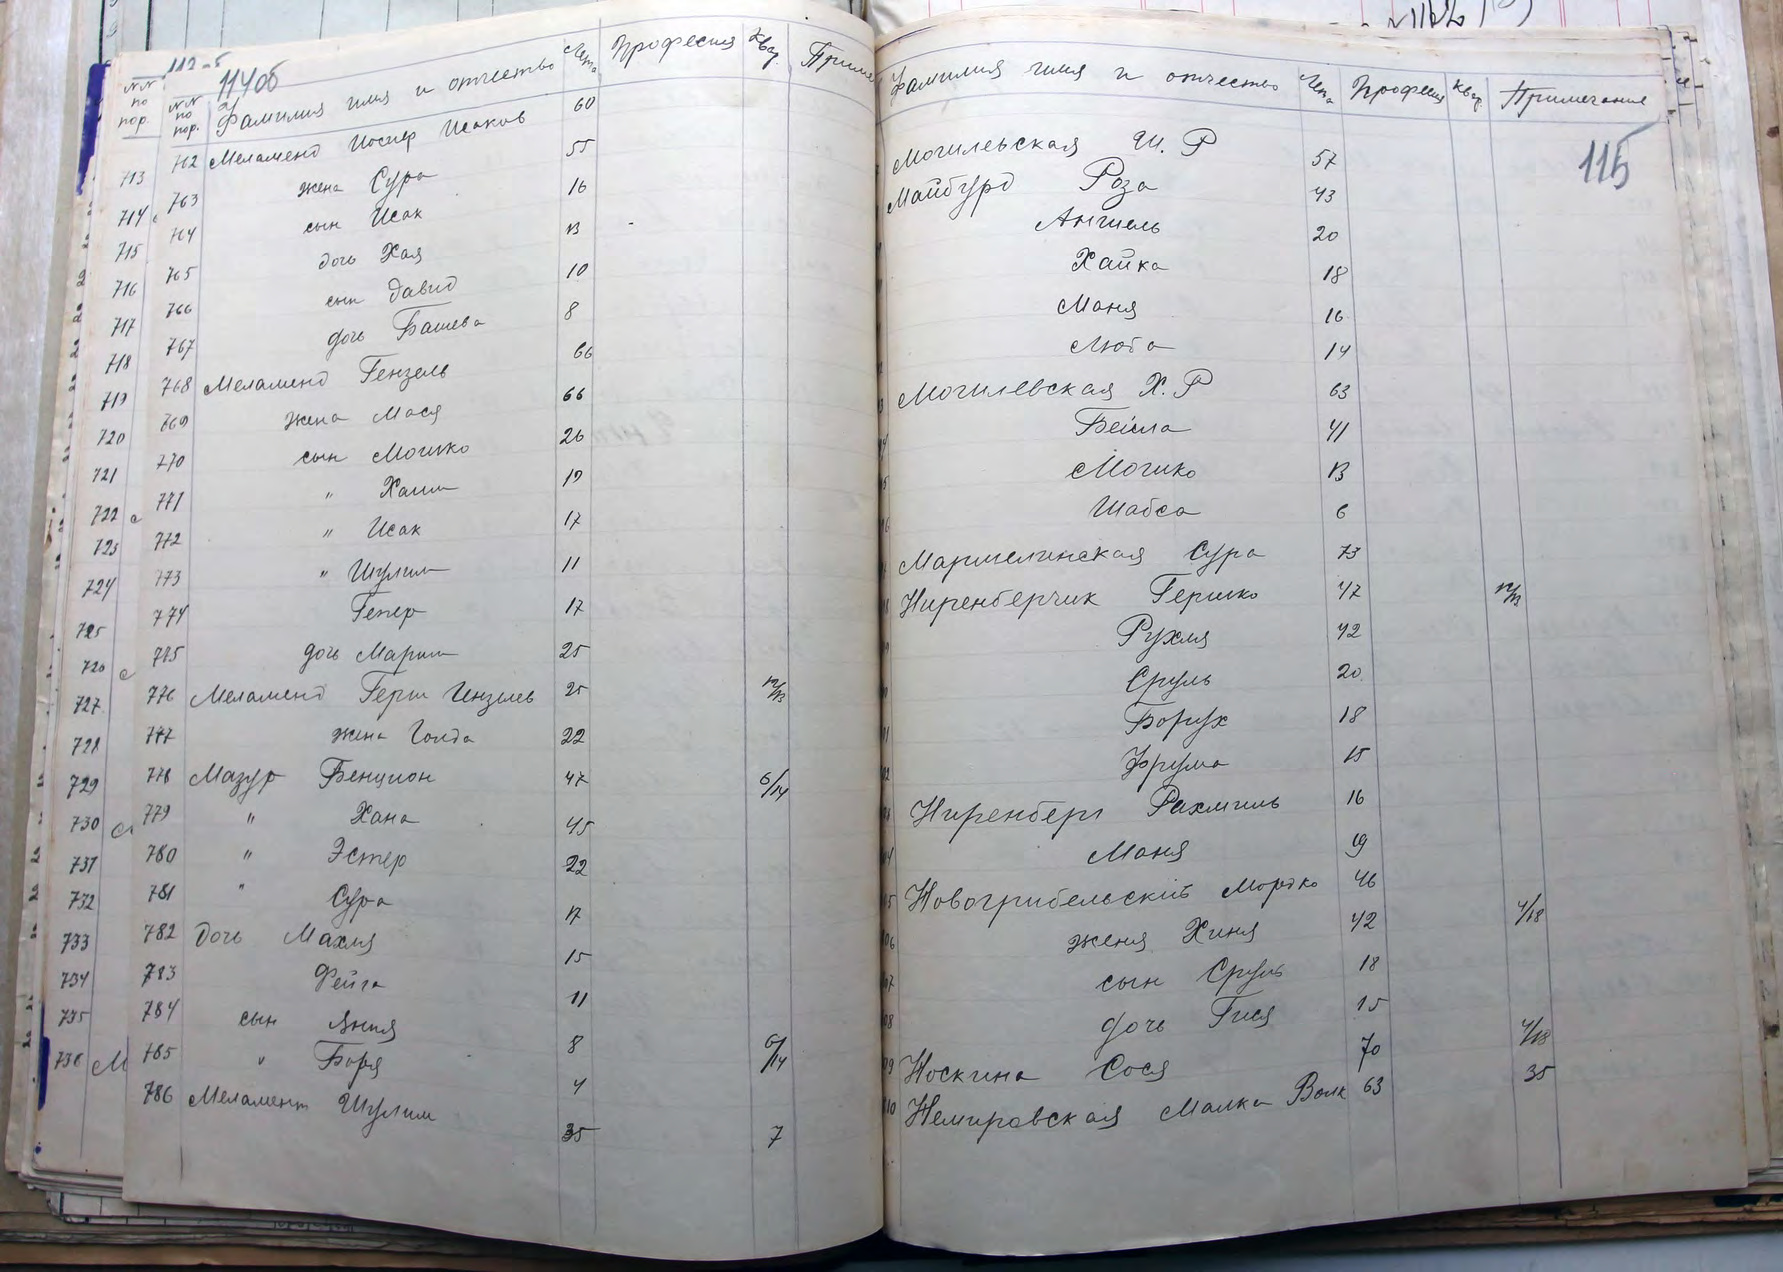 N 1162
112-б
114об
NN по пор.
NN по пор. Фамилия имя и отчество Лета Професия Квар. Приме
762 Меламенд Иосиф Исаков 60
763 жена Сура 55
764 сын Исак 16
765 дочь Хая 13
766 сын Давид 10
767 дочь Башева 8
768 Меламенд Гензель 66
769 жена Мася 66
770 сын Мошко 26
771 " Хаим 19
772 " Исак 17
773 " Шулим 11
774 Гепер 17
775 дочь Марим 25
776 Меламенд Герш Гензелев 25 12/13
777 жена Голда 22
778 Мазур Бенцион 47 6/14
779 " Хана 45
780 " Эстер 22
781 " Сура 17
782 Дочь Махля 15
783 Фейга 11
784 сын Яшия 8 6/14
785 " Боря 4
786 Меламент Шулим 35 7
713
714
715
716
717
718
719
720
721
722
723
724
725
726
727
728
729
730
731
732
733
734
735
736 М
Фамилия имя и отчество Лета Професия Квар. Примечание
115
Могилевская Ш. Р 57
Майбурд Роза 43
Аншель 20
Хайка 18
Маня 16
Люба 14
Могилевская Х. Р 63
Бейла 41
Мошко 13
Шабса 6
Маршелинская Сура 73
Ниренберчик Гершко 47 12/13
Рухля 42
Сруль 20
Борух 18
Фрума 15
Ниренберг Рахмиль 16
Маня 19
Новогрибельский Мордко 46 4/18
женя Хиня 42
сын Сруль 18
дочь Гися 15
Носкина Сося 70 4/18
Немировская Малка Волк 63 35